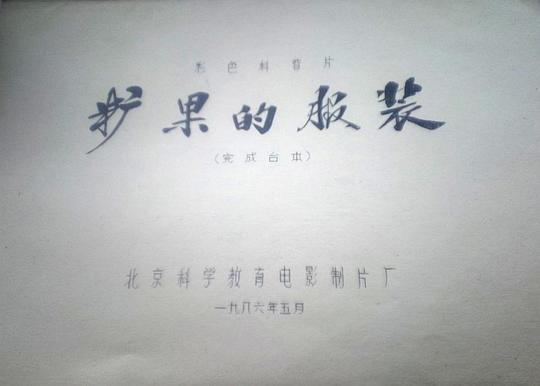 彩色科普片
扩果的服装
(完成台本)
北京科学教育电影制片厂
一九八六年五月